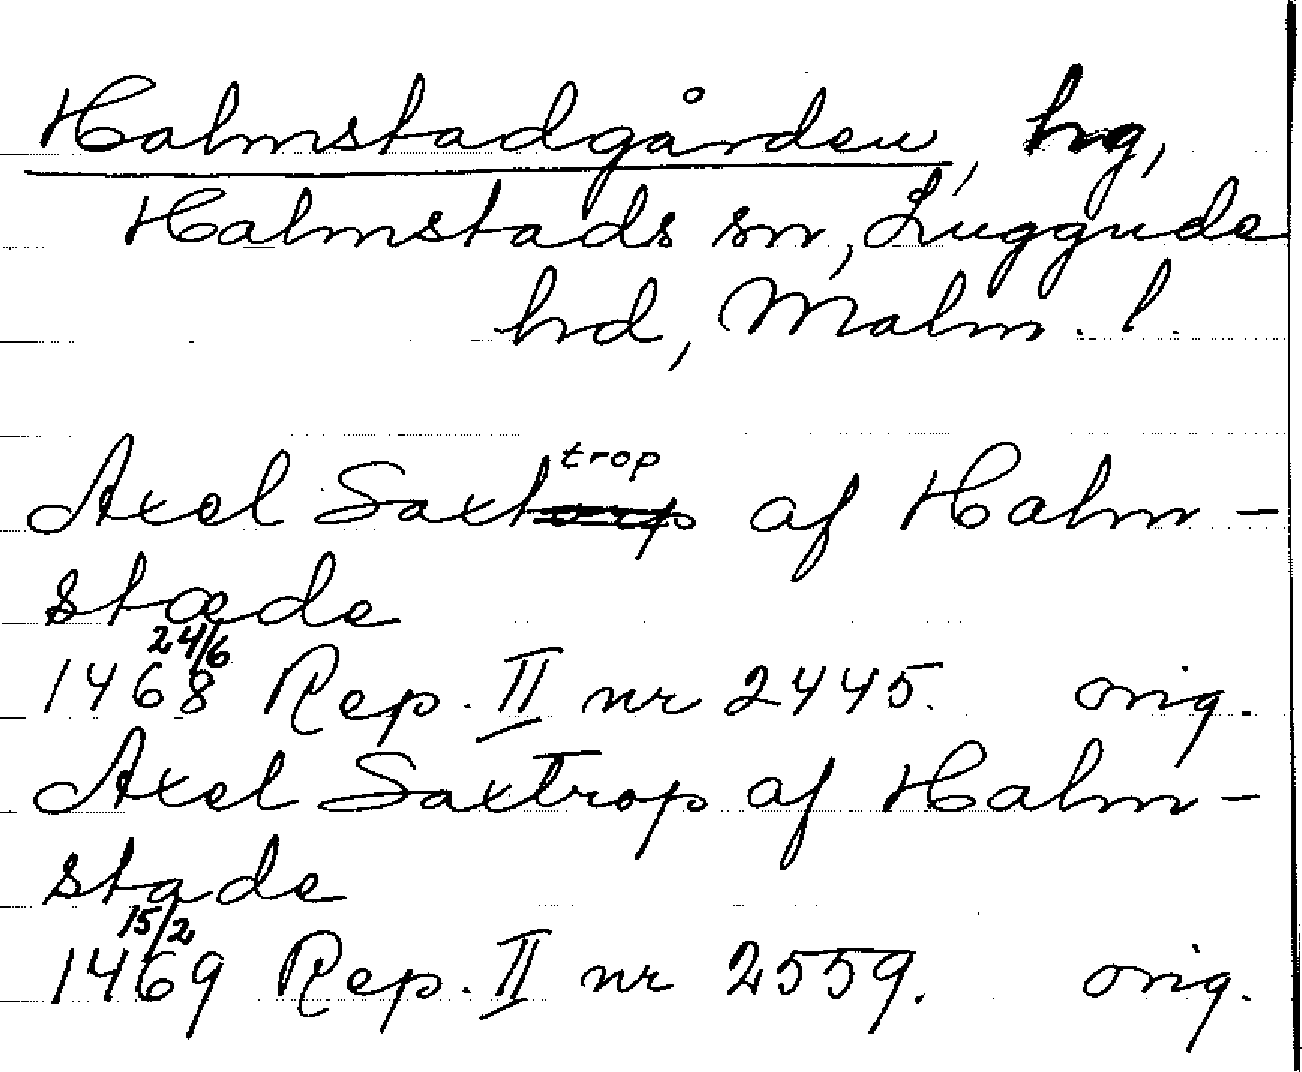 Halmstadgården, hg,
Halmstads sn, Luggude
hd, Malm. l.
Axel Saxtrop af Halm-
stæde
24/6
1468 Rep. II nr 2445. orig.
Axel Saxtrop af Halm-
stade
15/2
1469 Rep. II nr 2559. orig.